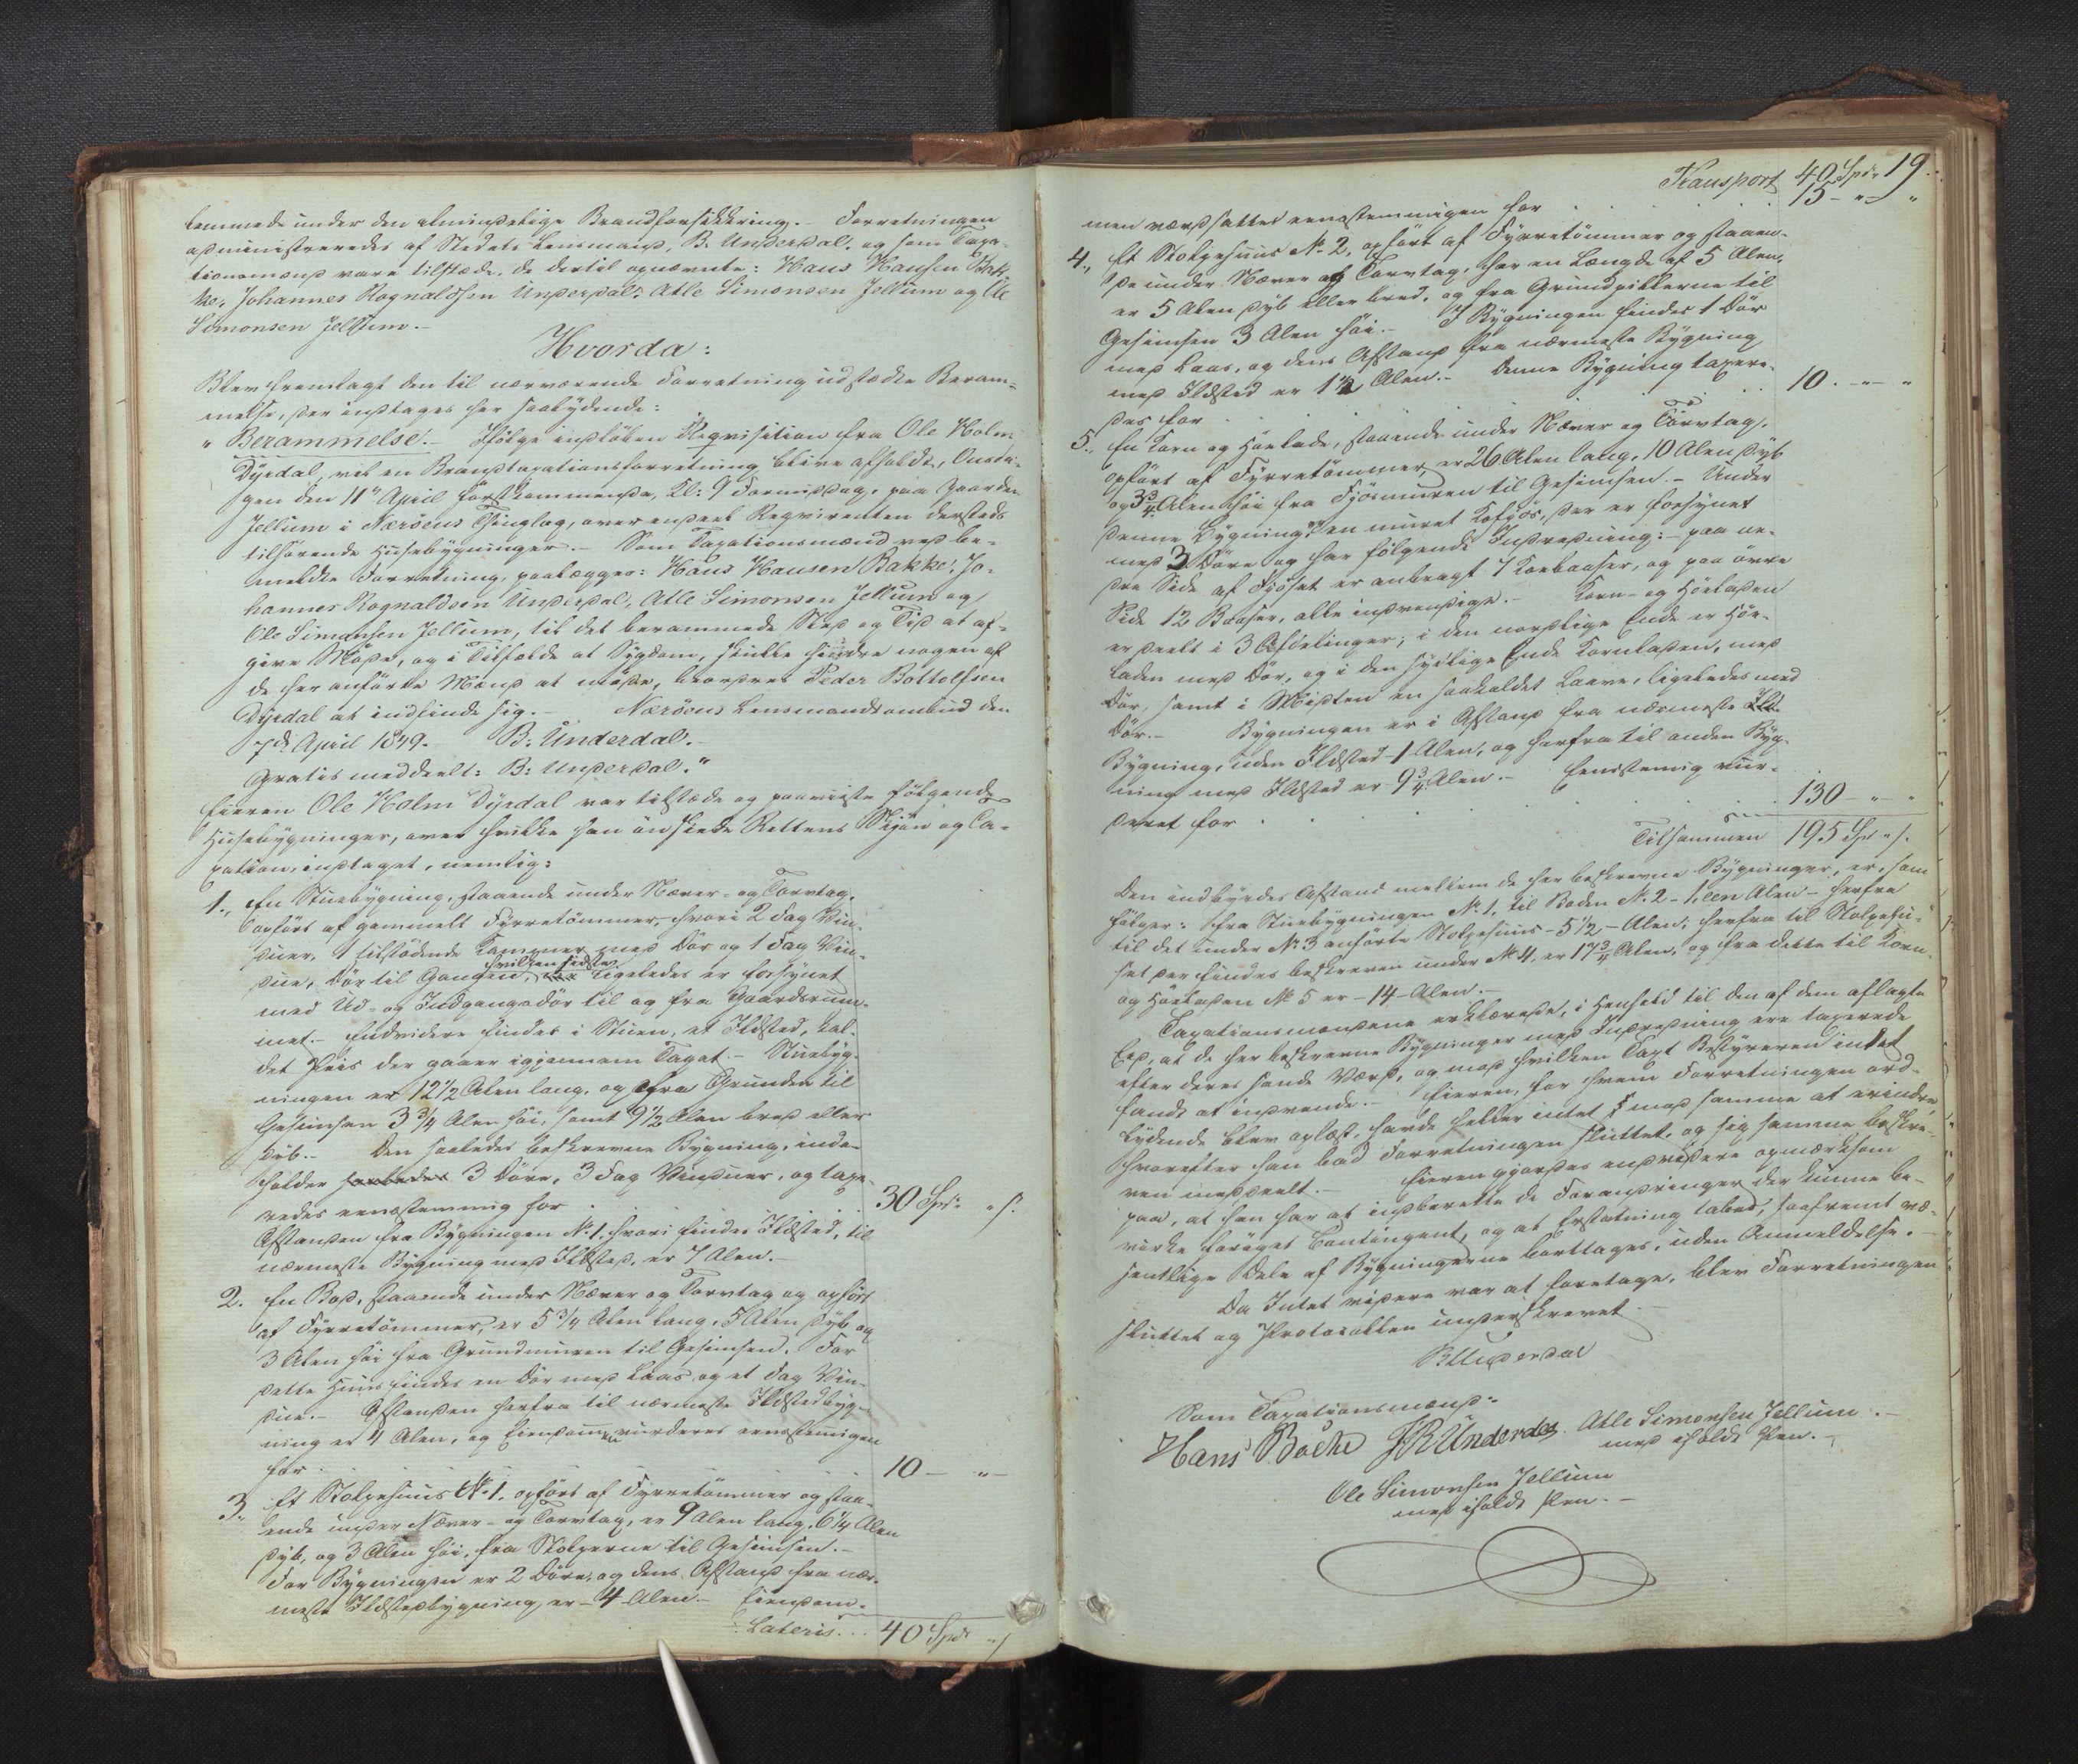 kommede under den almindelige Brandforsikkring. Forretningen
administreredes af Stedets Lensmand, B. Underdal, og som Taxa-
tionsmænd vare tilstæde, de dertil opnævnte: Hans Hansen Bak-
ke, Johannes Rognaldsen Underdal, Atle Simonsen Jellum og Ole
Simonsen Jellum.-
Hvorda:
Blev fremlagt den til nærværende Forretning udstædte Beram-
melse, der indtages her saalydende:
"Berammelse.- Ifølge indløben Reqvisition fra Ole Holm
Dyrdal, vil en Brandtaxationsforretning blive afholdt, Onsda-
gen den 11te April førstkommende, Kl: 9 Formiddag, paa Gaarden
Jellum i Nærøens Thinglag, over endeel Reqvirenten dersteds
tilhørende Husebygninger.- Som Taxationsmænd ved be-
meldte Forretning, paalægges: Hans Hansen Bakke, Jo-
hannes Rognaldsen Underdal, Atle Simonsen Jellum og
Ole Simonsen Jellum, til det berammede Sted og Tid at af-
give Møde, og i Tilfælde at Sygdom, skulle hindre nogen af
de her anførte Mænd at møde, beordres Peder Bottolfsen
Dyrdal at indfinde sig.- Nærøens Lensmandsombud den
7de April 1849. B: Underdal.-
Gratis meddeelt: B: Underdal."
Eieren Ole Holm Dyrdal var tilstæde og paaviiste følgende
Husebygninger, over hvilke han ønskede Rettens Skjøn og Ta-
xation, indtaget, nemlig:
1., En Stuebygning, staaende under Næver- og Torvtag,
opført af gammelt Fyrretømmer, hvori 2 Fag Vin-
duer, 1 tilstødende Kammer med Dør og 1 Fag Vin-
due, Dør til Gangen, hvilken sidste ligeledes er forsynet
med Ud- og Indgangsdør til og fra Gaardsrum-
met.- Endvidere findes i Stuen, et Ildsted, kal-
det Peis der gaaer igjennem Taget.- Stuebyg-
ningen er 12 1/2 Alen lang, og fra Grunden til
Gesimsen 3 3/4 Alen høi, samt 9 1/2 Alen bred eller
dyb.- Den saaledes beskrevne Bygning, inde-
holder saaledes 3 Døre, 3 Fag Vinduer, og taxe-
redes eenstemmig for . . . 30 Spd " s.
Afstanden fra Bygningen No 1. hvori findes Ildsted, til
nærmeste Bygning med Ildsted, er 7 Alen.-
2. En Bod, staaende under Næver og Torvtag og opført
af Fyrretømmer, er 5 3/4 Alen lang, 5 Alen dyb og
3 Alen høi fra Grundmuren til Gesimsen. For
dette Huus findes en Dør med Laas og et Fag Vin-
due.- Afstanden herfra til nærmeste Ildstedbyg-
ning er 4 Alen, og Eiendommen vurderes eenstemmigen
for . . . 10 - " -
3., Et Stolpehuus No 1. opført af Fyrretømmer og staa-
ende under Næver- og Torvtag, er 9 Alen lang, 6 1/4 Alen
dyb, og 3 Alen høi, fra Stolperne til Gesimsen.-
For Bygningen er 2 Døre, og dens Afstand fra nær-
meste Ildstedbygning er - 4 Alen.- Eiendom-
Lateris . . . 40 Spd " s
19.
Transport 40 Spd "
men værdsattes eenstemmigen for . . . 15 - " - "
4., Et Stolpehuus No 2, opført af Fyrretømmer og staaen-
de under Næver og Torvtag, har en Længde af 5 Alen,
er 5 Alen dyb eller bred, og fra Grundpillerne til
Gesimsen 3 Alen høi.- I Bygningen findes 1 Dør
med Laas, og dens Afstand fra nærmeste Bygning
med Ildsted er 1 1/2 Alen.- Denne Bygning taxere-
des for . . . 10. - " - "
5., En Korn og Høelade, staaende under Næver og Torvtag,
opført af Fyrretømmer, er 26 Alen lang, 10 Alen dyb
og 3 3/4 Alen høi fra Fjøsmuren til Gesimsen.- Under
denne Bygning en muret Kofjøs, der er forsynet
med 3 Døre og har følgende Indredning: paa ne-
dre Side af Fjøset er anbragt 7 Koebaaser, og paa øvre
Side 12 Baaser, alle indvendige.- Korn- og Høeladen
er deelt i 3 Afdelinger; i den nordlige Ende er Høe-
laden med Dør, og i den sydlige Ende Kornladen, med
Dør, samt i Midten en saakaldet Laave, ligeledes med
Dør.- Bygningen er i Afstand fra nærmeste
Bygning, uden Ildsted 1 Alen, og herfra til anden Byg-
ning med Ildsted er 9 3/4 Alen.- Eenstemig vur-
deret for . . . 130 - " - "
Tilsammen 195 Sp " s.
Den indbyrdes Afstand mellem de her beskrevne Bygninger, er, som
følger: fra Stuebygningen No 1, til Boden No 2 - 1, een Alen - herfra
til det under No 3 anførte Stolpehuus - 5 1/2 - Alen; herfra til Stolpehu-
set der findes beskreven under No 4, er 17 3/4 Alen, og fra dette til Korn-
og Høeladen No 5 er - 14 - Alen.-
Taxationsmændene erklærede, i Henhold til den af dem aflagte
Eed, at de her beskrevne Bygninger med Indredning ere taxerede
efter deres sande Værd, og mod hvilken Taxt Bestyreren intet
fandt at indvende.- Eieren, for hvem Forretningen ord-
lydende blev oplæst, havde heller intet mod samme at erindre,
hvorefter han bad Forretningen sluttet, og sig samme beskre-
ven meddeelt.- Eieren gjordes endvidere opmærksom
paa, at han har at indberette de Forandringer der kunne be-
virke forøget Contingent, og at Erstatning tabes, saafremt væ-
sentlige Dele af Bygningerne borttages, uden Anmeldelse.-
Da Intet videre var at foretage, blev Forretningen
sluttet og Protocollen underskrevet.-
B Underdal
Som Taxationsmænd:
Hans Backe JR Underdal Atle Simonsen Jellum.-
med iholdt Pen.-
Ole Simonsen Jellum
med iholdt Pen.-